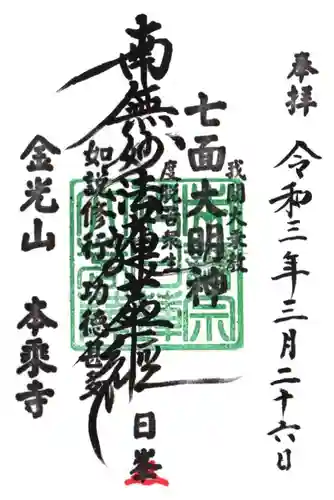 奉拝
令和三年三月二十六日
七面大明神
度脱苦衆生
南無妙法蓮華経
如説修行功徳甚多
日
金光山 本乗寺